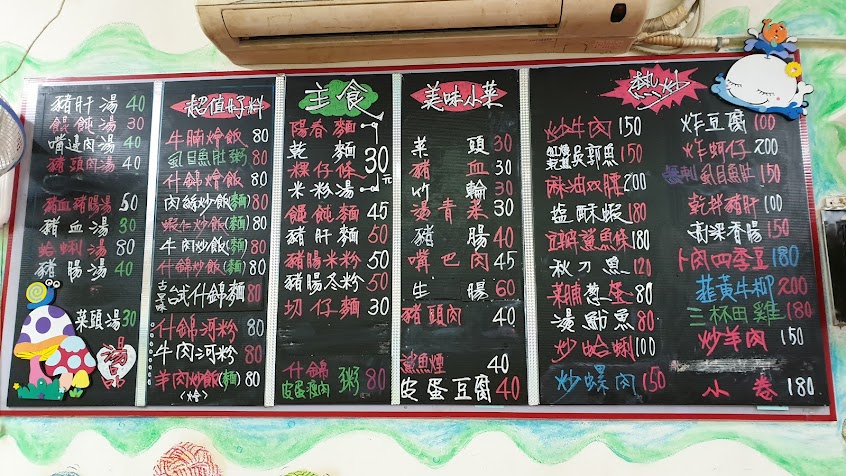 豬肝湯 40
餛飩湯 30
嘴邊肉湯 40
豬頭肉湯 40
豬血豬腸湯 50
豬血湯 30
蛤蜊湯 80
豬腸湯 40
菜頭湯 30
湯品
超值好料
牛腩燴飯 80
虱目魚肚粥 80
什錦燴飯 80
肉絲炒飯(麵) 80
蝦仁炒飯(麵) 80
牛肉炒飯(麵) 80
什錦炒飯(麵) 80
古早味 台式什錦麵 80
什錦河粉 80
牛肉河粉 80
羊肉炒飯(麵) 80
(燴)
主食
陽春麵
乾麵
粿仔條
米粉湯
30元
餛飩麵 45
豬肝麵 50
豬腸米粉 50
豬腸冬粉 50
切仔麵 30
什錦
皮蛋瘦肉 粥 80
美味小菜
菜頭 30
豬血 30
竹輪 30
燙青菜 30
豬腸 40
嘴巴肉 45
生腸 60
豬頭肉 40
鯊魚煙 40
皮蛋豆腐 40
熱炒
炒牛肉 150
紅燒 吳郭魚 150
麻油双腰 200
塩酥蝦 180
豆瓣鯊魚條 180
秋刀魚 120
菜脯蔥蛋 80
燙魩魚 80
炒蛤蜊 100
炒螺肉 150
炸豆腐 100
炸蚵仔 200
無刺虱目魚肚 150
乾粉豬肝 100
高深香腸 150
卜肉四季豆 180
韮黃牛柳 200
三杯田雞 180
炒羊肉 150
小卷 180